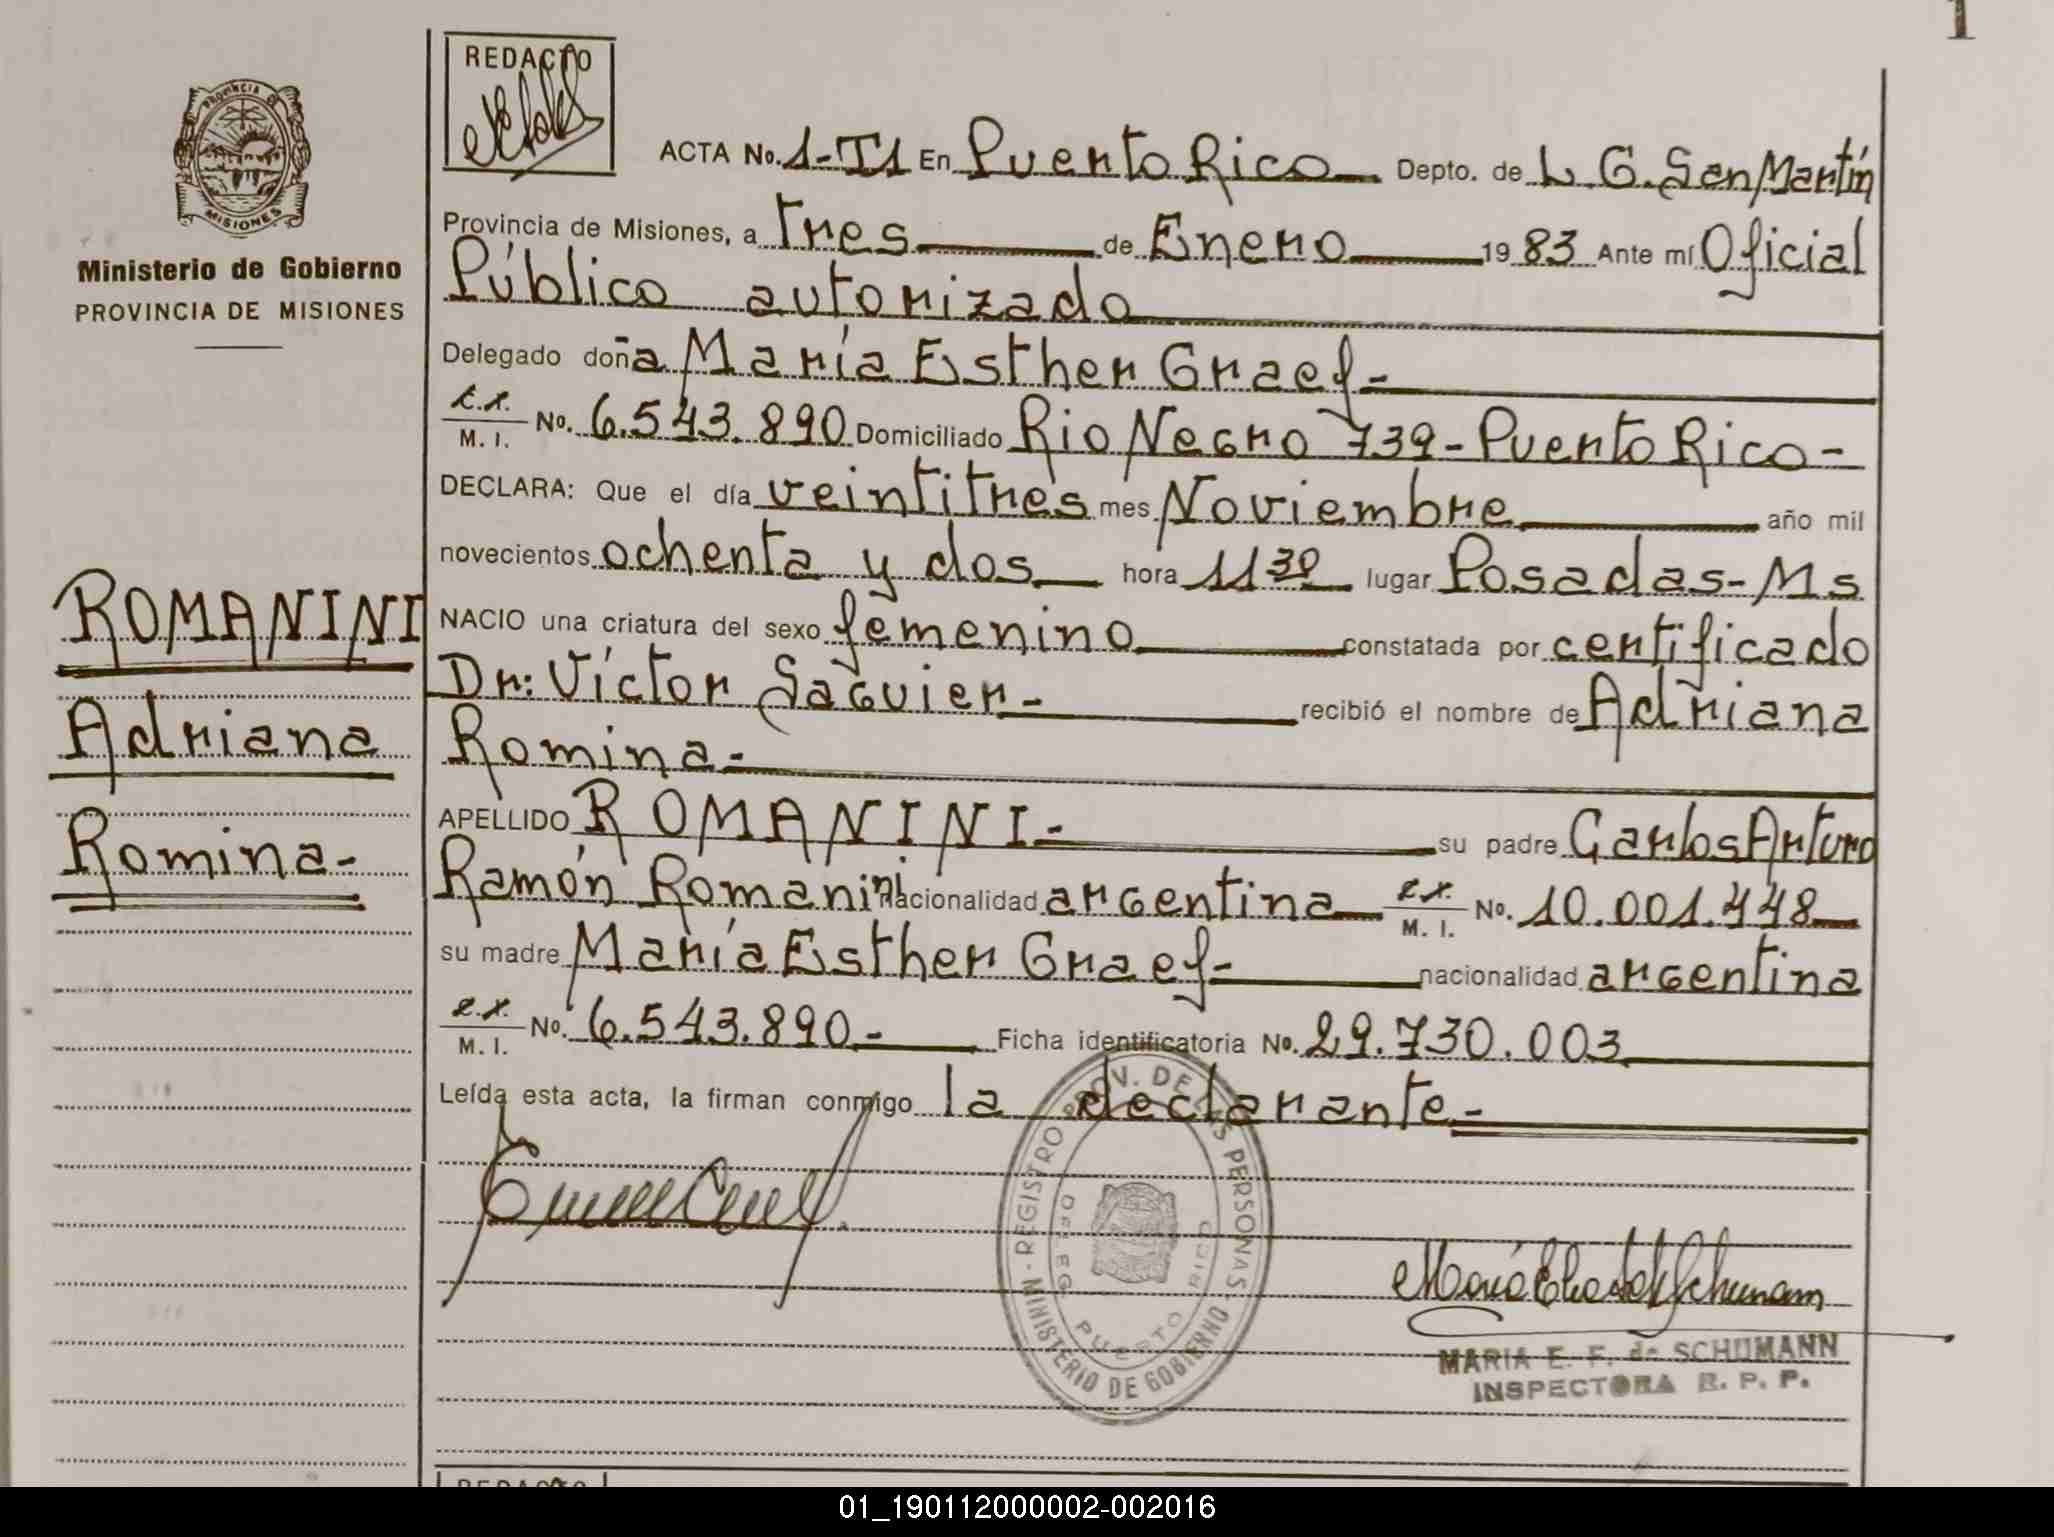 1
REDACTO
PROVINCIA DE
MISIONES
Ministerio de Gobierno
PROVINCIA DE MISIONES
ROMANINI
Adriana
Romina-
ACTA No. 1-T1 En Puerto Rico Depto. de L. G. San Martín
Provincia de Misiones, a tres de Enero 1983 Ante mí Oficial
Público autorizado
Delegado doña María Esther Graef-
M. I. No. 6.543.890 Domiciliado Rio Negro 739-Puerto Rico-
DECLARA: Que el día veintitres mes Noviembre año mil
novecientos ochenta y dos hora 11 30 lugar Posadas-Ms
NACIO una criatura del sexo femenino constatada por certificado
Dr: Víctor Saguier- recibió el nombre de Adriana
Romina-
APELLIDO ROMANINI- su padre Carlos Arturo
Ramón Romanini nacionalidad argentina M. I. No. 10.001.448
su madre María Esther Graef- nacionalidad argentina
M. I. No. 6.543.890- Ficha identificatoria No. 29.730.003
Leída esta acta, la firman conmigo la declarante-
REGISTRO PROV. DE LAS PERSONAS - MINISTERIO DE GOBIERNO
DELEG. PUERTO RICO
MARIA E. F. de SCHUMANN
INSPECTORA R. P. P.
REDACTO
01_190112000002-002016